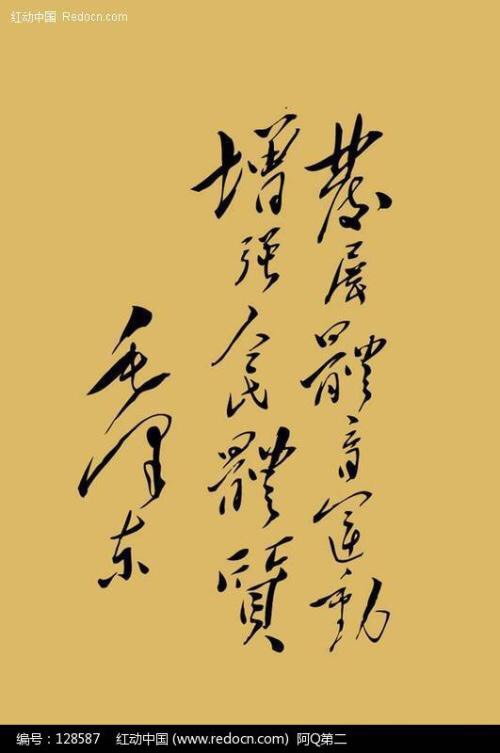 红动中国 Redocn.com
發展體育運動
增强人民體質
毛澤东
编号：128587 红动中国 (www.redocn.com) 阿Q第二